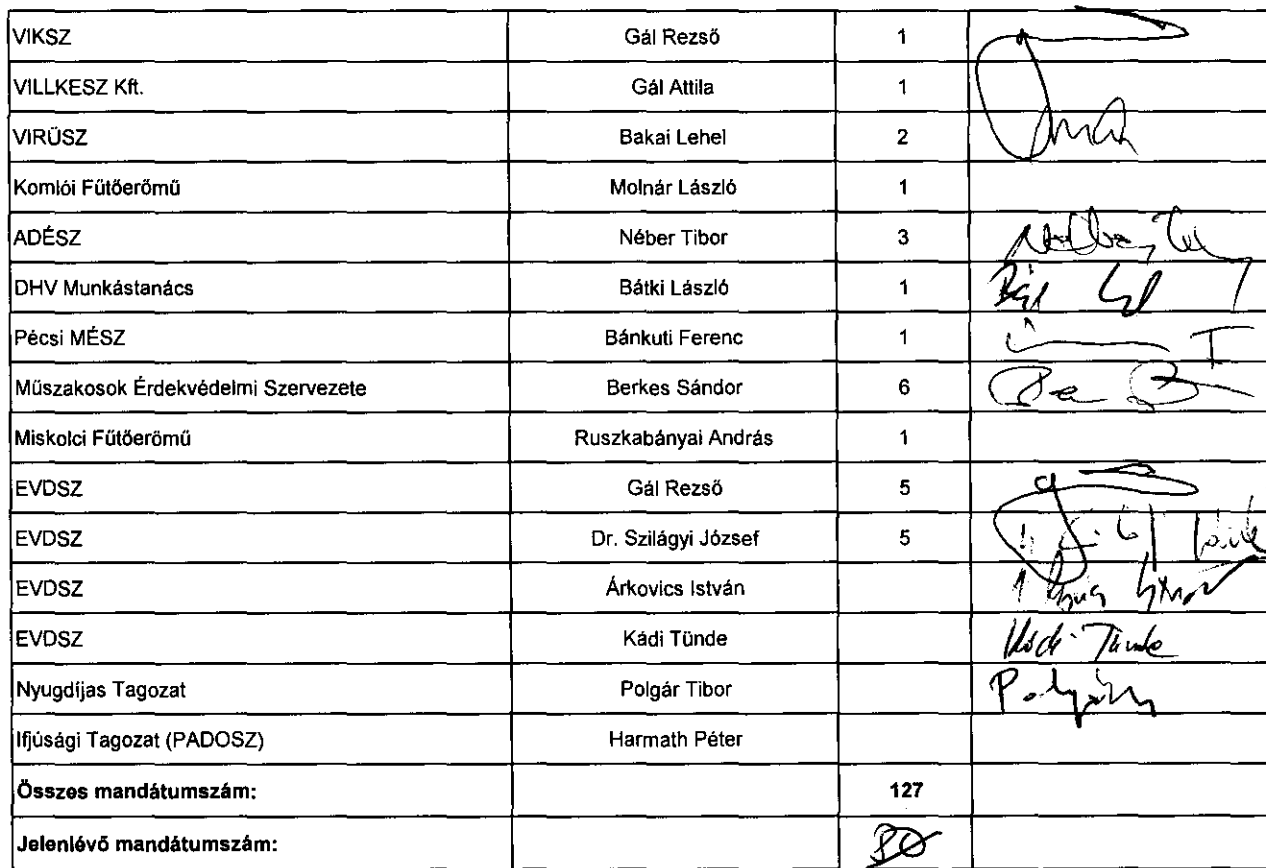 VIKSZ Gál Rezső 1
VILLKESZ Kft. Gál Attila 1
VIRÜSZ Bakai Lehel 2
Komlói Fűtőerőmű Molnár László 1
ADÉSZ Néber Tibor 3
DHV Munkástanács Bátki László 1
Pécsi MÉSZ Bánkuti Ferenc 1
Műszakosok Érdekvédelmi Szervezete Berkes Sándor 6
Miskolci Fűtőerőmű Ruszkabányai András 1
EVDSZ Gál Rezső 5
EVDSZ Dr. Szilágyi József 5
EVDSZ Árkovics István
EVDSZ Kádi Tünde Kádi Tünde
Nyugdíjas Tagozat Polgár Tibor
Ifjúsági Tagozat (PADOSZ) Harmath Péter
Összes mandátumszám: 127
Jelenlévő mandátumszám: